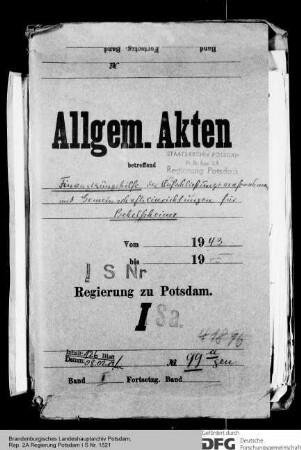 Band Fortsetzg. Band
№
Allgem. Akten
betreffend
STAATSARCHIV POTSDAM
Pr. Br. Rep. 2A
Regierung Potsdam
Finanzierungshilfe der Aufschließungsmaßnahmen
und Gemeinschaftseinrichtungen für
Behelfsheime
Vom 1943
bis 19
I S Nr
Regierung zu Potsdam.
I Sa.
41896
Inhalt: 126 Blatt
Datum:
№ 99 a gen.
Band I Fortsetzg. Band
Brandenburgisches Landeshauptarchiv Potsdam,
Rep. 2A Regierung Potsdam I S Nr. 1521
Gefördert durch
DFG Deutsche
Forschungsgemeinschaft